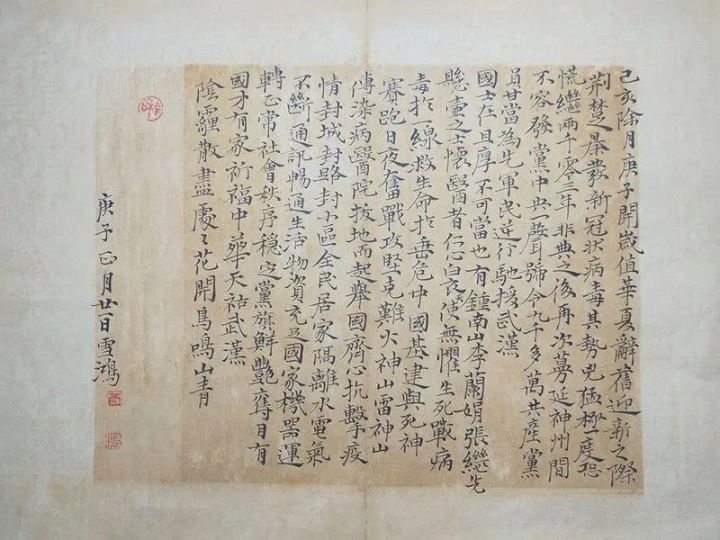 己亥除月庚子開歲值華夏辭舊迎新之際
荆楚暴發新冠狀病毒其勢兇猛極一度恐
慌繼兩千零三年非典之後再次蔓延神州間
不容發黨中央一聲號令九千多萬共產黨
員甘當為先軍民逆行馳援武漢
國士在且厚不可當也有鍾南山李蘭娟張繼先
懸壺之士懷醫者仁心白衣天使無懼生死戰病
毒於一線救生命於垂危中國基建與死神
賽跑日夜奮戰攻堅克難火神山雷神山
傳染病醫院拔地而起舉國齊心抗擊疫
情封城封路封小區全民居家隔離水電氣
不斷通訊暢通生活物資充足國家機器運
轉正常社會秩序穩定黨旗鮮艷奪目有
國才有家祈福中華天祐武漢
陰霾散盡處處花開鳥鳴山青
庚子正月廿一日雪鴻